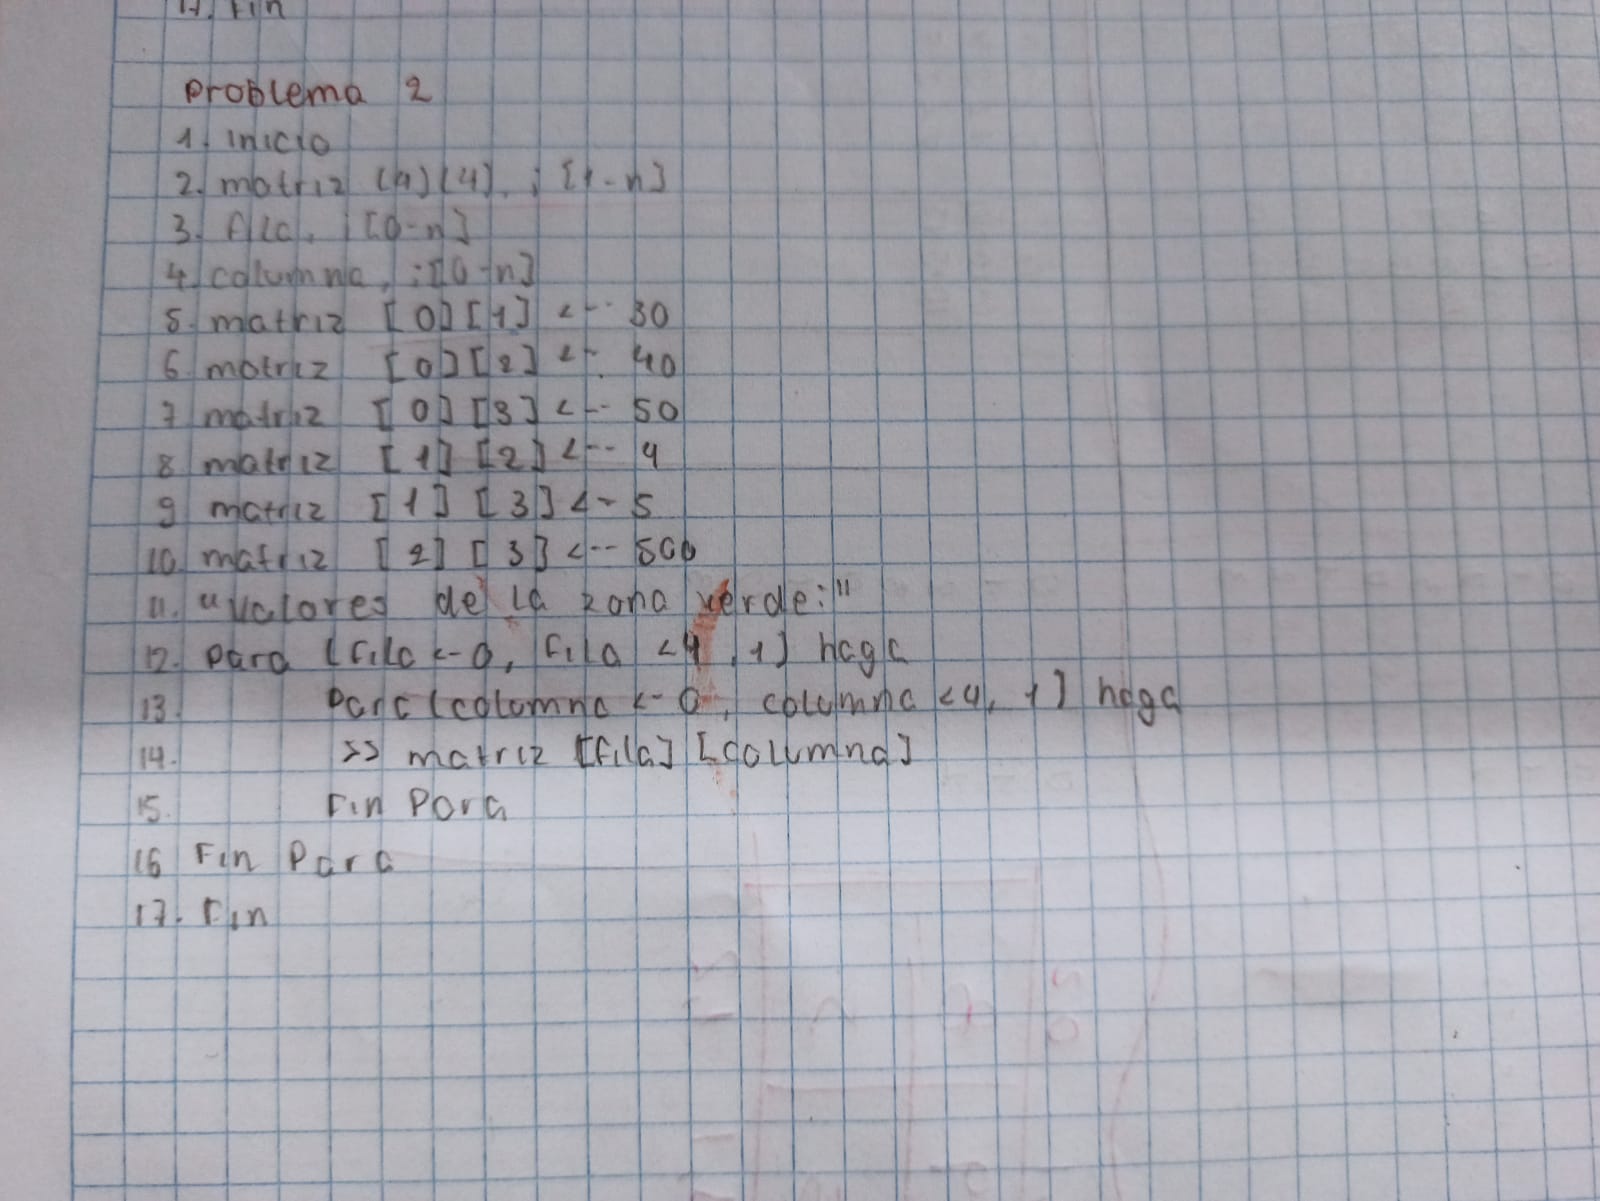 17. Fin
Problema 2
1. inicio
2. matriz (4)(4), ; [1-n]
3. fila, ; [0-n]
4. columna, ; [0-n]
5. matriz [0][1] <-- 30
6. matriz [0][2] <-- 40
7. matriz [0][3] <-- 50
8. matriz [1][2] <-- 4
9. matriz [1][3] <- 5
10. matriz [2][3] <-- 500
11. "valores de la zona verde:"
12. Para (fila <- 0, fila <4, 1) haga
13. Para (columna <- 0, columna <4, 1) haga
14. >> matriz [fila] [columna]
15. Fin Para
16 Fin Para
17. Fin